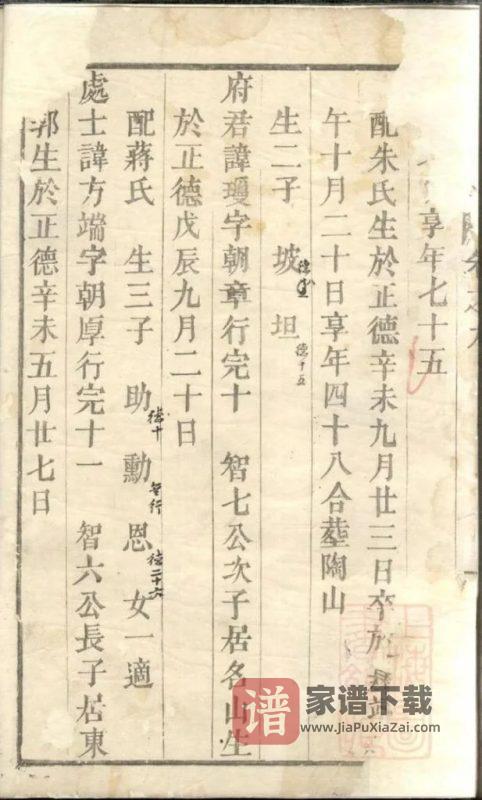 享年七十五
配朱氏生於正德辛未九月廿三日卒於嘉靖
午十月二十日享年四十八合塟陶山
生二子 坡 坦
府君諱瓊字朝章行完十 智七公次子居名山生
於正德戊辰九月二十日
配蔣氏 生三子 助 勳 恩 女一適
處士諱方端字朝厚行完十一 智六公長子居東
郭生於正德辛未五月廿七日
德十五
德十
德二十六
谱 家谱下载
www.JiaPuXiaZai.com